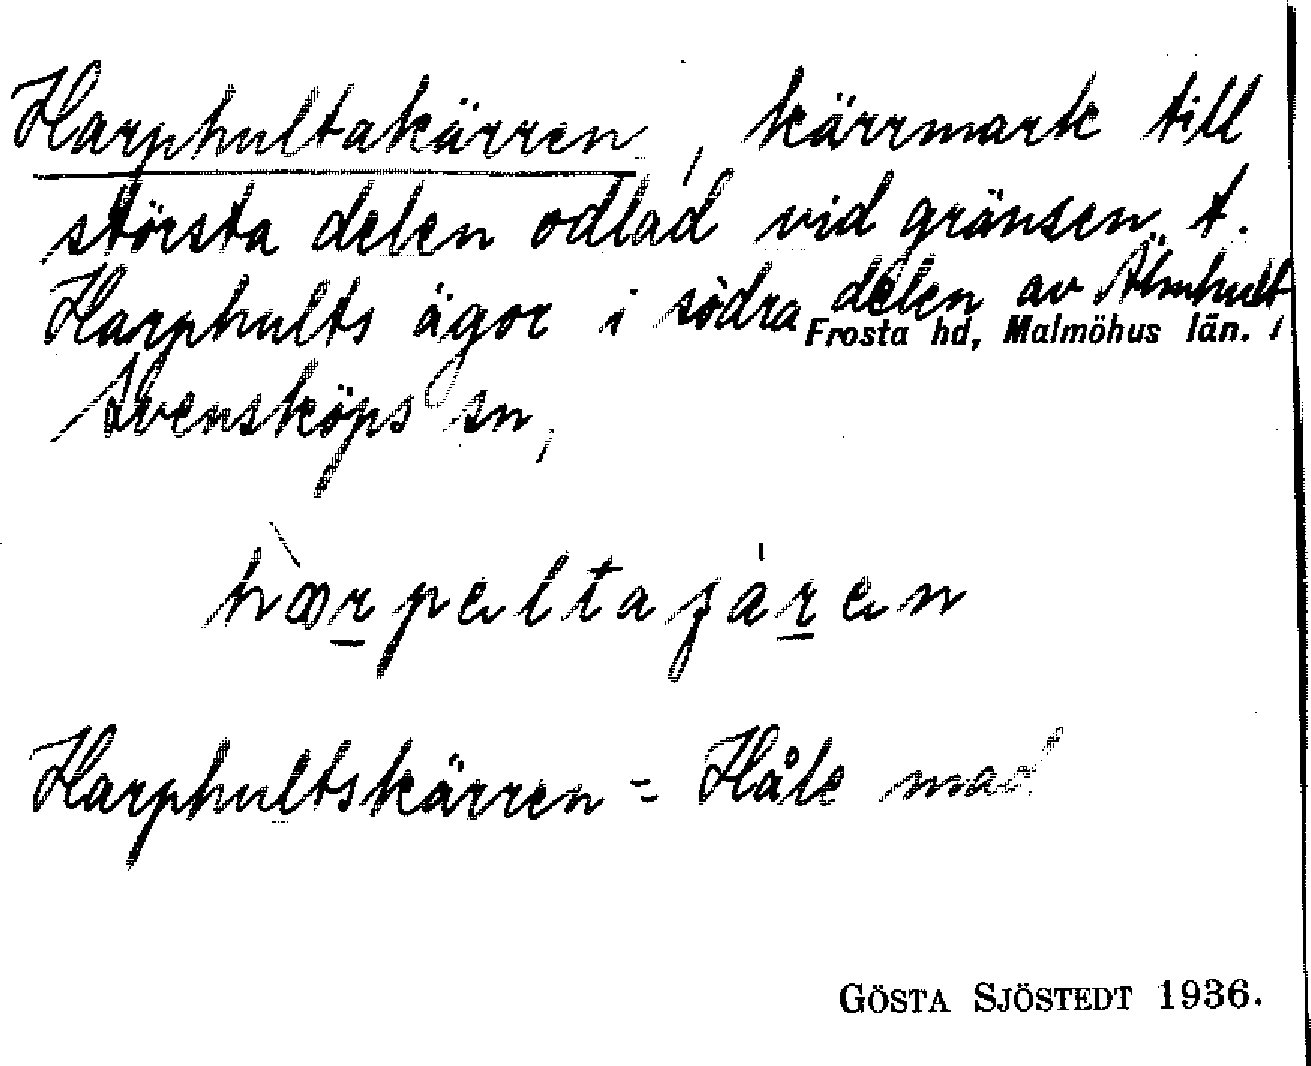 Harphultakärren, kärrmark till
största delen odlad vid gränsen t.
Harphults ägor i södra delen av Älmhult,
Frosta hd, Malmöhus län.
Svensköps sn,
hàrpeltaʒä́ren
Harphultskärren = Håle mad
GÖSTA SJÖSTEDT 1936.